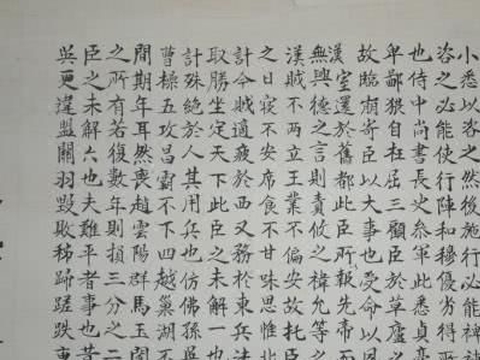 小悉以咨之然後施行必能裨
咨之必能使行陣和穆優劣得
也侍中尚書長史參軍此悉貞
卑鄙猥自枉屈三顧臣於草廬之
故臨崩寄臣以大事也受命以
漢室還於舊都此臣所報先帝而
無興德之言則責攸之禕允等之
漢賊不兩立王業不偏安故托臣
之日寢不安席食不甘味思惟北
計今賊適疲於西又務於東兵法
取勝坐定天下此臣之未解一也
計殊絕於人其用兵也仿佛孫吳
曹操五攻昌霸不下四越巢湖不
間期年耳然喪趙雲陽群馬玉閻
之所有若復數年則損三分之二
臣之未解六也夫難平者事也昔
吳更違盟關羽毀敗秭歸蹉跌曹